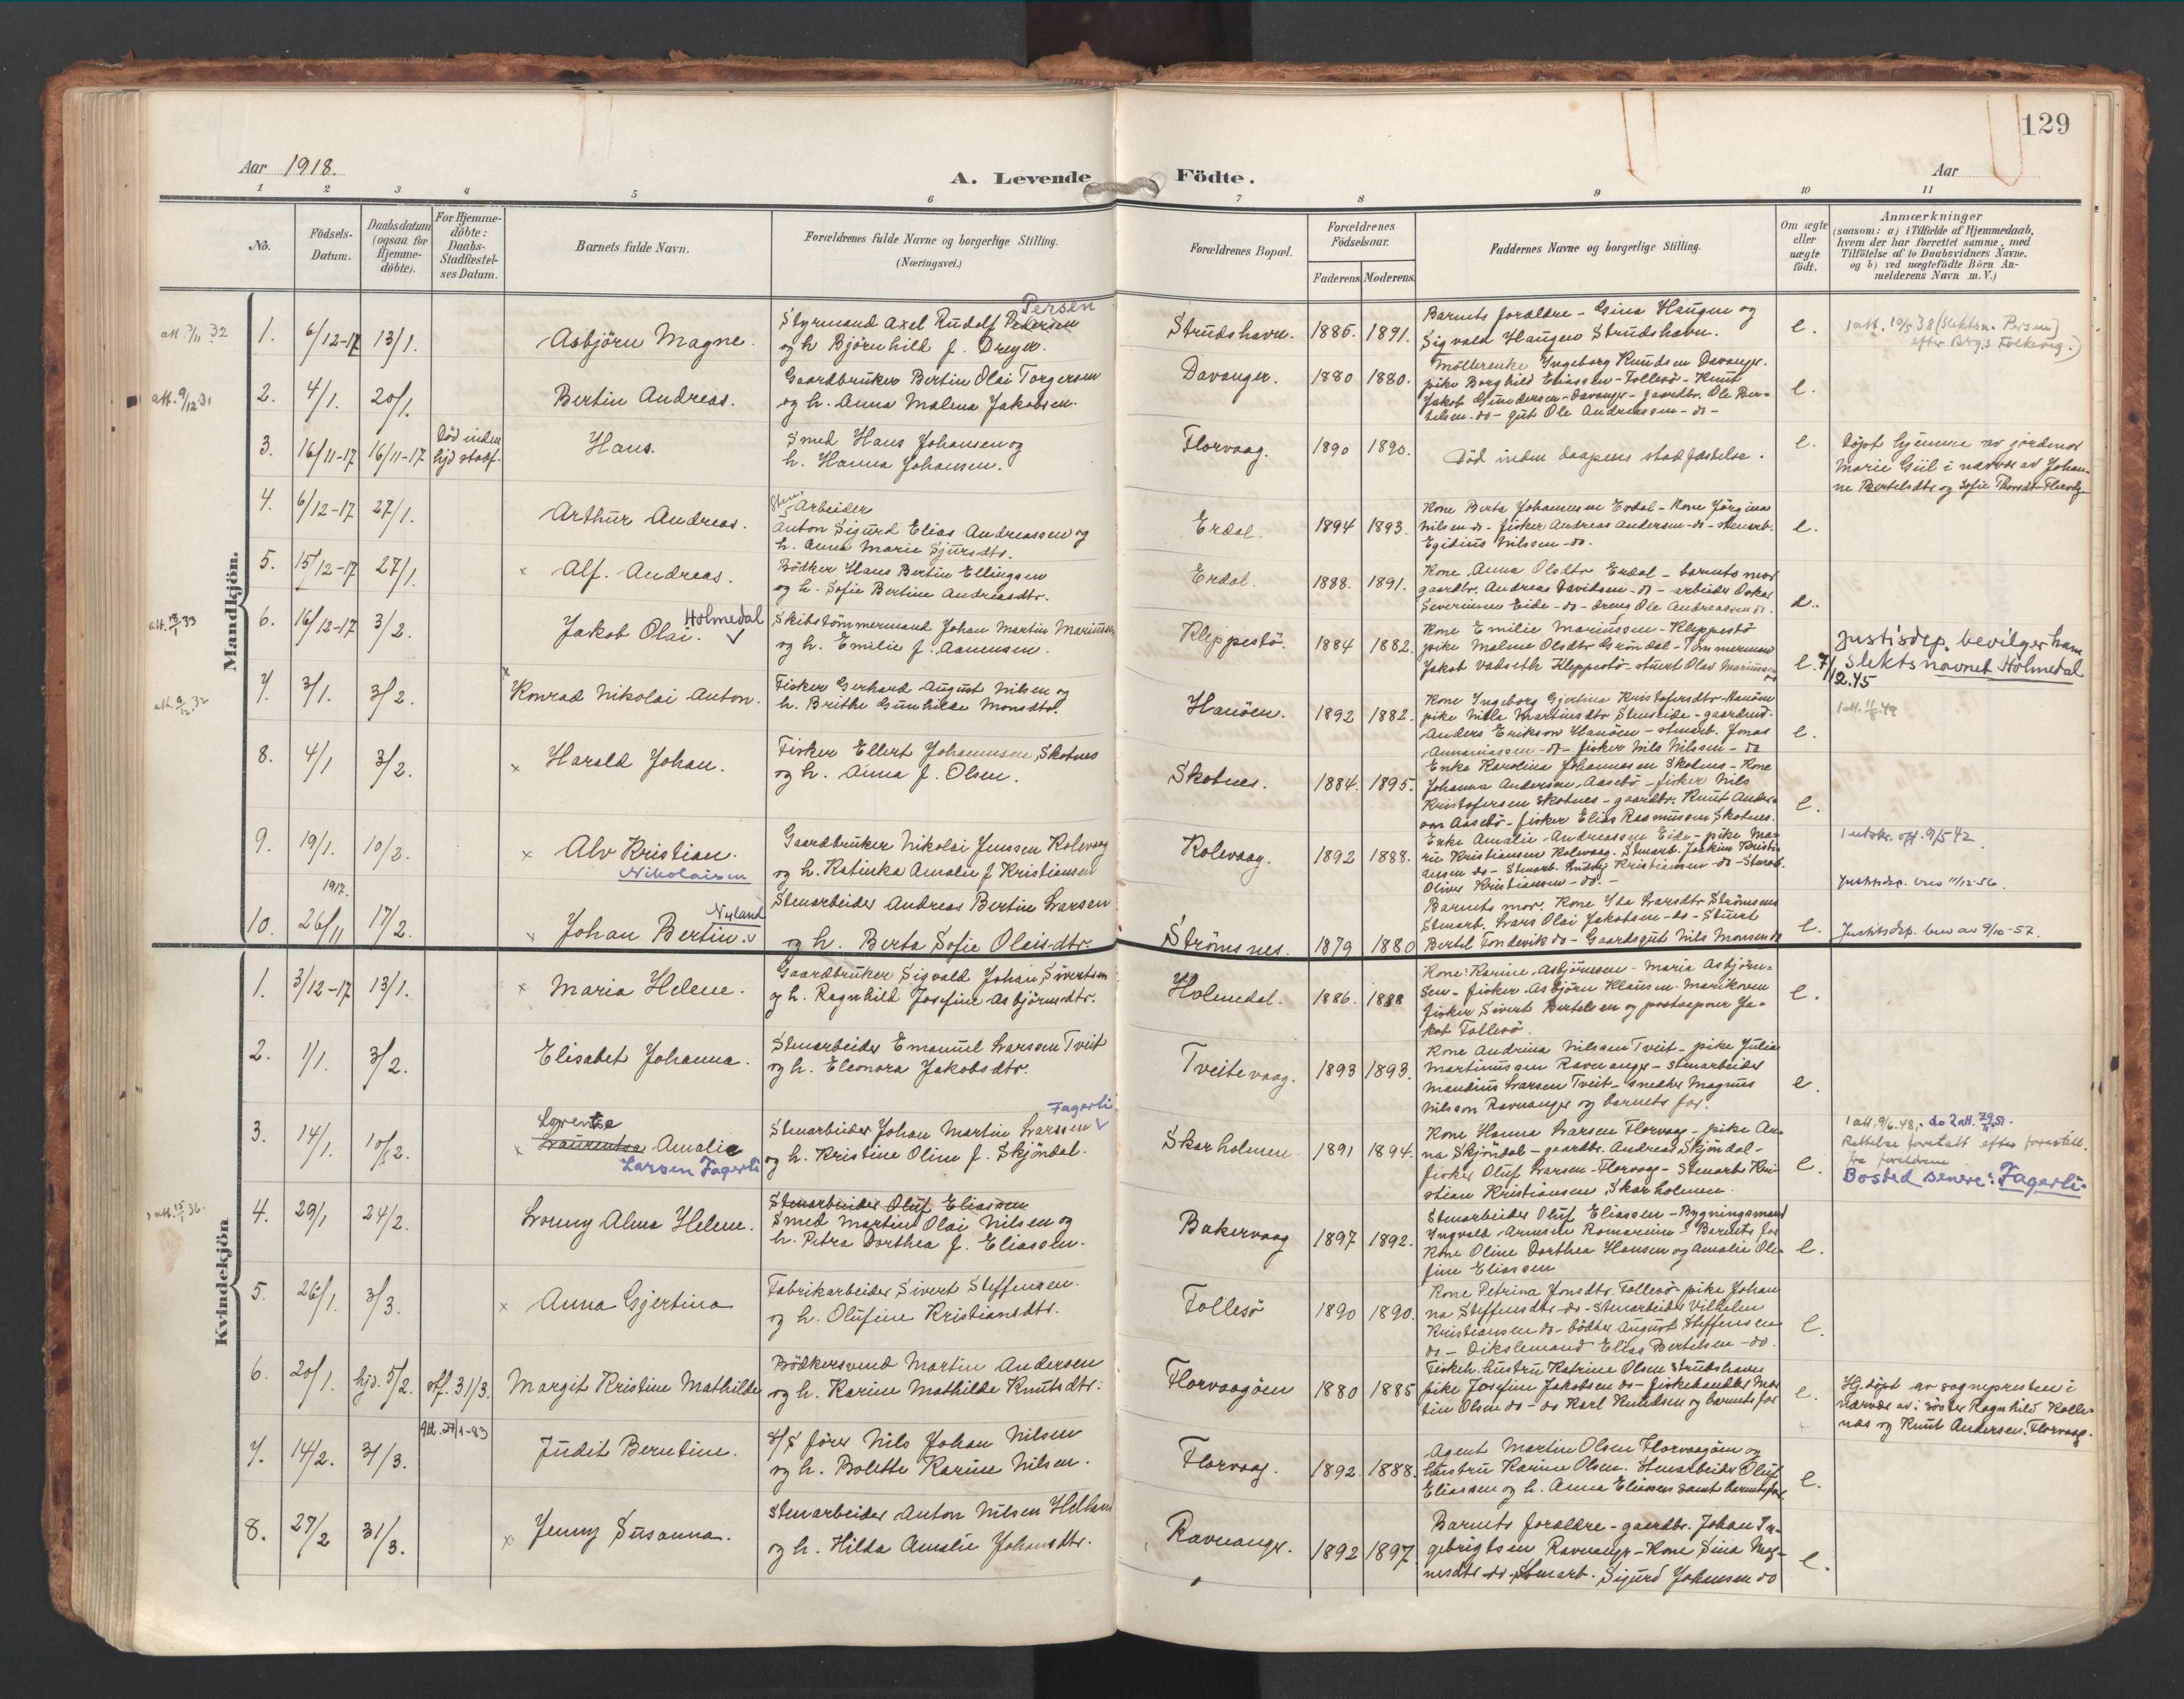 129
Aar 1918.
A. Levende Födte.
Aar
1 2 3 4 5 6 7 8 9 10 11
No.
Födsels-Datum.
Daabsdatum (ogsaa for Hjemme-döbte).
For Hjemme-döbte: Daabs-Stadfæstel-ses Datum.
Barnets fulde Navn.
Forældrenes fulde Navne og borgerlige Stilling.
(Næringsvei.)
Forældrenes Bopæl.
Forældrenes Födselsaar.
Faderens. Moderens.
Faddernes Navne og borgerlige Stilling.
Om ægte eller uægte födt.
Anmærkninger
(saasom: a) i Tilfælde af Hjemmedaab,
hvem der har forrettet samme, med
Tilföielse af to Daabsvidners Navne,
og b) ved uægtefödte Börn An-
melderens Navn m. V.)
Mandkjön.
att. 3/11 32
1. 6/12-17 13/1. Asbjörn Magne.
Persen
Styrmand Axel Rudolf Pedersen
og h Björnhild f. Dreyer.
Strudshavn. 1885. 1891.
Barnets foraldre - Gina Haugen og
Sigvald Haugen Strudshavn.
e.
1 att. 10/5 38 (Slektsn. Persen)
efter Brg.s Folkereg.)
att. 9/12 31
2. 4/1. 20/1. Bertin Andreas.
Gaardbruker Bertin Olai Torgersen
og h. Anna Malena Jakobsen.
Davanger. 1880 1880.
Möllerenke Ingeborg Knudsen Davanger.
pike Borghild Eliassen - Follesö - Knut
Jakob Gundersen - Davanger - gaardbr. Ole Ber-
telsen - do - gut Ole Andreassen - do -
e.
3. 16/11-17 16/11-17 Död inden hjd stadf. Hans.
Smed Hans Johansen og
h. Hanna Johansen.
Florvaag. 1890 1890.
Död inden daapens stadfæstelse.
e.
Döpt hjemme av jordmor
Marie Giil i nærvær av Johan-
ne Bertelsdtr og Sofie Florvåg
4. 6/12-17 27/1. Arthur Andreas.
Sten Arbeider
Anton Sigurd Elias Andreassen og
h. Anna Marie Sjursdtr.
Erdal. 1894 1893.
Kone Berta Johannesen Erdal - Kone Jörgine
Nilsen - do - fisker Andreas Andersen - do - stenarb.
Egidius Nilssen - do.
e.
5. 15/12-17 27/1. × Alf. Andreas.
Bödker Hans Bertin Ellingsen
og h. Sofie Bertine Andreasdtr.
Erdal. 1888. 1891.
Kone Anna Olsdtr Erdal - barnets mor
gaardbr. Andreas Davidsen - do - arbeider Oskar
Severinsen Eide - do - dreng Ole Andreassen do.
e.
att. 13/1 33
6. 16/12-17 3/2. Jakob Olai. Holmedal
Skibstömmermand Johan Martin Mariussen
og h. Emilie f. Aanensen.
Kleppestö. 1884 1882.
Kone Emilie Mariussen - Kleppestö
pike Malene Olsdtr Gröndal - Tömmermand
Jakob Vadseth Kleppestö - stuert Olav Mariussen
do
e.
Justisdep. bevilger ham
7/12.45 Slektsnavnet Holmedal
att. 9/12 32
7. 3/1. 3/2. × Konrad Nikolai Anton.
Fisker Gerhard August Nilsen og
h. Brithe Gunhilde Monsdtr.
Hanöen. 1892 1882.
Kone Ingeborg Gjertine Kristofersdtr Hanöen
pike Nille Martinsdtr Steinseide - gaardmd.
Anders Erikson Hanöen - stenarb. Jonas
Annaniassen - do - fisker Nils Nilssen - do
e.
1 att. 11/8 49
8. 4/1 3/2. × Harald Johan.
Fisker Ellert Johannesen Skotnes
og h. Anna f. Olsen.
Skotnes. 1884. 1895.
Enke Karolina Johannesen Skotnes - Kone
Johanna Anderson, Aasebö - fisker Nils
Kristofersen Skotnes - gaardbr. Knut Ander-
son Aasebö - fisker Elias Rasmussen Skotnes.
e.
9. 19/1. 10/3. × Alv Kristian.
Nikolaisen
Gaardbruker Nikolai Jenssen Rolevaag
og h. Katinka Amalie f Kristiansen
Rolevaag. 1892 1888.
Enke Amalie Andreassen Eide - pike Ma-
rie Kristiansen Rolevaag. Stenarb. Joakim Kristi-
ansen do - Stenarb. Ludvig Kristiansen - do - Stenarb.
Oliver Kristiansen - do. -
e.
1 utskr. off. 9/5 42.
Justitsdep. brev 11/12-56.
1917.
10. 26/11 17/2. × Johan Bertin. Nyland
Stenarbeider Andreas Bertin Larsen
og h. Berta Sofie Olaisdtr.
Strömsnes. 1879 1880
Barnets mor. Kone Ida Larsdtr Strömsnes
Stenarb. Lars Olai Jakobsen - do - Stuert
Bertel Tondevik do - Gaardsgut Nils Monsen do
e.
Justitsdep. brev av 9/10-57.
Kvindekjön
1. 3/12-17 13/1. × Maria Helene.
Gaardbruker Sigvald Johan Sivertsen
og h. Ragnhild Josefine Asbjörnsdtr.
Holmedal. 1886. 1888
Kone: Karine Asbjörnsen - Maria Asbjörn-
sen - fisker Asbjörn Klausen - Marikoven
fisker Sivert Bertelsen og postaapner Ja-
kob Follesö.
e.
2. 1/1. 3/2. Elisabet Johanna.
Stenarbeider Emanuel Larsen Tveit
og h. Eleonora Jakobsdtr.
Tveitevaag. 1893 1893.
Kone Andrina Nilsen Tveit - pike Julia
Martinussen Ravnanger - stenarbeider
Mandius Larsen Tveit - snedker Magnus
Nilsson Ravnanger og barnets far.
e.
3. 14/1. 10/2. × Lorentse
Laurentse Amalie
Larsen Fagerli
Fagerli
Stenarbeider Johan Martin Larssen
og h. Kristine Oline f. Skjöndal.
Skarholmen 1891 1894.
Kone Hanna Larsen Florvaag - pike An-
na Skjöndal - gaardbr. Andreas Skjöndal -
fisker Oluf Larsen - Florvaag - Stenarb. Kri-
stian Kristiansen, Skarholmen.
e.
1 att. 9/6.48, do 2 att. 29/11 51.
Rettelse foretatt efter forestill.
fra foreldrene
Bosted senere: Fagerli.
att. 15/1 36.
4. 29/1 24/2. Lonny Alma Helene.
Stenarbeider Oluf Eliassen
Smed Martin Olai Nilsen og
h. Petra Dorthea f. Eliassen.
Bakervaag 1897 1892.
Stenarbeider Oluf Eliassen - Bygningsmand
Ingvald Arnesen Romarheim - Barnets far
Kone Oline Dorthea Hansen og Amalie Ole-
fine Eliassen
e.
5. 26/1. 3/3. × Anna Gjertina
Fabrikarbeider Sivert Steffensen.
og h. Olufine Kristiansdtr.
Follesö 1890 1890.
Kone Petrina Jonsdtr. Follesö - pike Johan
na Steffensdtr - do - stenarbeider Vilhelm
Kristiansen do - bödker August Steffensen
do - Dikslemand Elias Bertelsen - do.
e.
6. 20/1. hjd. 5/2. stf. 31/3. Margit Kristine Mathilde
Bödkersvend Martin Andersen
og h. Karine Mathilde Knutsdtr.
Florvaagöen 1880 1885
Fiskeh. hustru Katrine Olsen Strudshavn
pike Josefine Jakobsen do - fiskehandler Mar
tin Olsen do - do Karl Knudsen og barnets far
e.
Hj. döpt av sognepresten i
nærvær av: söster Ragnhild Kolle-
nas og Knut Andersen. Florvaag.
Att. 27/1-83
7. 14/2. 31/3. Judit Berntine.
S/S förer Nils Johan Nilsen
og h. Bolette Karine Nilsen.
Florvaag. 1892. 1888.
Agent Martin Olsen Florvaagöen og
hustru Karine Olsen. Stenarbeider Oluf
Eliassen og h. Anna Eliassen samt barnets far
e.
8. 27/2 31/3. × Jenny Susanna.
Stenarbeider Anton Nilsen Helland
og h. Hilda Amalie Johansdtr.
Ravnanger. 1892 1897
Barnets foraldre - gaardbr. Johan In-
gebrigtsen Ravnanger - Kone Sina Mag-
nesdtr do - Stenarb. Sigurd Johansen do
e.